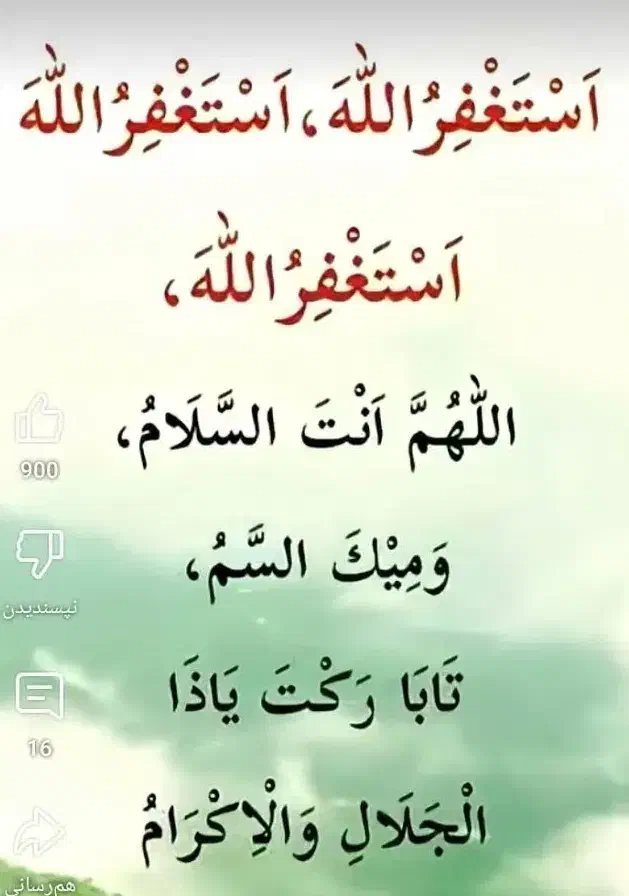 اَسْتَغْفِرُ اللّٰهَ، اَسْتَغْفِرُ اللّٰهَ
اَسْتَغْفِرُ اللّٰهَ،
اللّٰهُمَّ اَنْتَ السَّلَامُ،
وَمِيْكَ السَّمُ،
تَابَا رَكْتَ يَاذَا
الْجَلَالِ وَالْاِكْرَامُ
900
نپسندیدن
16
هم‌رسانی